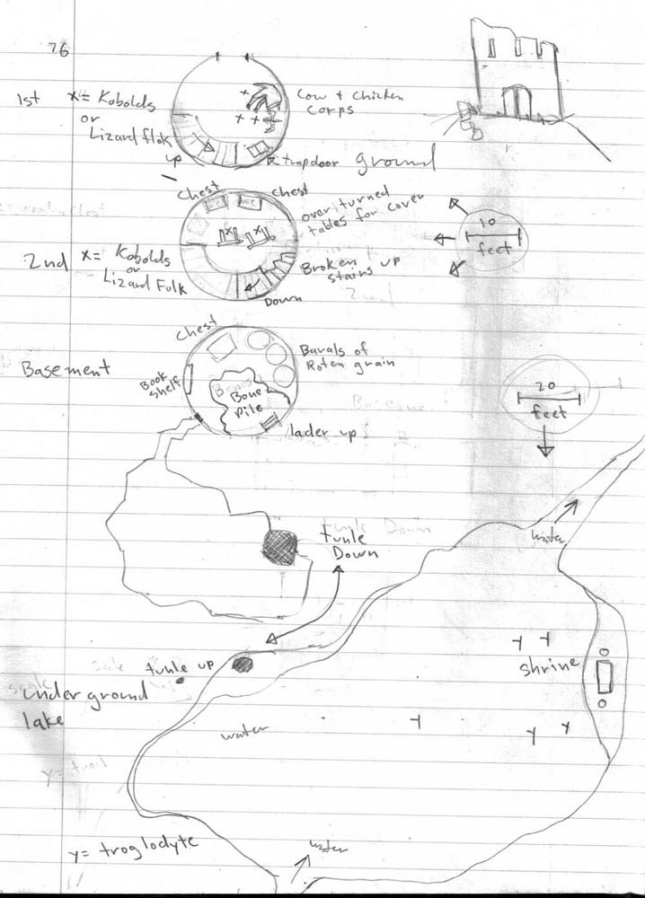 76
1st
x= Kobolds
or
Lizard flok
up
Cow + Chicken
Corps
trapdoor
ground
chest
chest
over turned
tables for cover
2nd
x= Kobolds
or
Lizard Folk
x
x
Broken up
stairs
Down
10
feet
Basement
Chest
Book
shelf
Barals of
Roten grain
Bone
Pile
lader up
20
feet
tunle
Down
water
tunle up
under ground
lake
Shrine
water
y= troglodyte
water